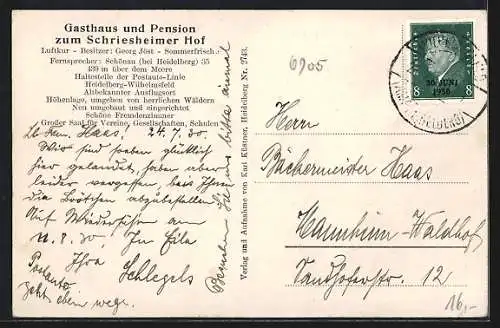 Gasthaus und Pension
zum Schriesheimer Hof
Luftkur - Besitzer: Georg Jöst - Sommerfrisch
Fernsprecher: Schönau (bei Heidelberg) 35
439 m über dem Meere
Haltestelle der Postauto-Linie
Heidelberg-Wilhelmsfeld
Altbekannter Ausflugsort
Höhenlage, umgeben von herrlichen Wäldern
Neu umgebaut und eingerichtet
Schöne Fremdenzimmer
Großer Saal für Vereine, Gesellschaften, Schulen
Lb. Fam. Haas! 24.7.30.
Wir sind soeben glücklich
hier gelandet, haben aber
leider vergessen, bei Ihnen
die Brötchen abzubestellen
Auf Wiedersehen am
12.8.30. In Eile
Ihre Schlegels
Postauto
geht eben weg.
Besuchen Sie uns bitte einmal
Verlag und Aufnahme von Karl Küstner, Heidelberg Nr. 2743.
6905
DEUTSCHES REICH
30. JUNI
1930
8 8
Herrn
Bäckermeister Haas
Mannheim-Waldhof
Sandhoferstr. 12
16,-